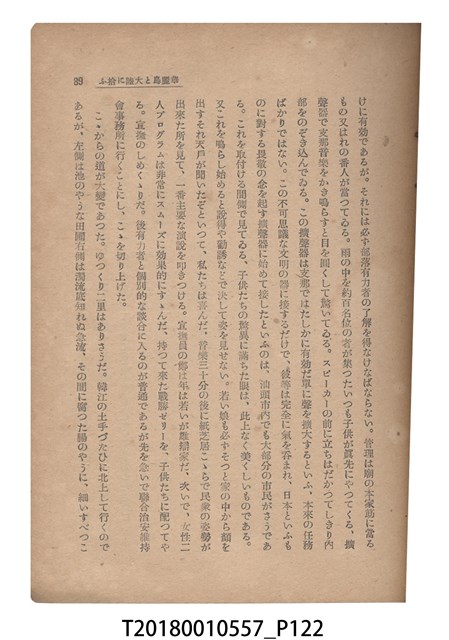 華麗島と大陸に沿ふ 89
けに有効であるが。それには必ず部落有力者の了解を得なければならない。管理は廟の本家筋に當る
もの又はれの番人が當つてゐる。雨の中を約百名位の者が集つたいつも子供が眞先にやつてくる、擴
聲器で支那音樂をかき鳴らすと目を圓くして驚いてゐる。スピーカーの前に立ちはだかつてしきり內
部をのぞき込んでゐる。この擴聲器は支那ではたしかに有効だ單に聲を擴大するといふ、本來の任務
ばかりではない。この不可思議な文明の器に接するだけで、彼等は完全に氣を呑まれ、日本といふも
のに對する畏敬の念を起す擴聲器に始めて接したといふのは、汕頭市內でも大部分の市民がさうであ
る。これを取付ける間側で見てゐる、子供たちの驚異に滿ちた眼は、此上なく美しいものである。
又これを鳴らし始めると說得や勸誘などで決して姿を見せない。若い娘も必ずそつと家の中から顏を
出すそれ天戶が開いたぞといつて、私たちは喜んだ、音樂三十分の後に紙芝居こゝらで民衆の姿勢が
出來た所を見て、一番主要な演說を叩きつける。宣撫員の鄭は年は若いが雄辯家だ、次いで、女性二
人プログラムは非常にスムーズに効果的にすゝんだ、持つて來た戰勝ゼリーを、子供たちに配つてや
る。宣撫のしめくゝりだ。後有力者と個別的な談合に入るのが普通であるが先を急いで聯合治安維持
會事務所に行くことにし、こゝを切り上げた。
こゝからの道が大變であつた。ゆつくり二里はありさうだ。韓江の土手づたひに北上して行くので
あるが、左側は池のやうな田圃右側は濁流底知れぬ急流、その間に響つた腸のやうに、細いすべつこ
T20180010557_P122